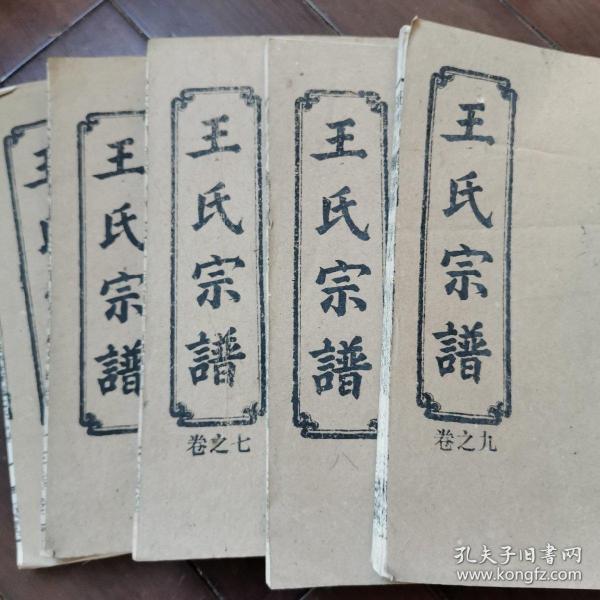 王氏宗譜
王氏宗譜
王氏宗譜
卷之七
王氏宗譜
八
王氏宗譜
卷之九
孔夫子旧書网
www.kongfz.com